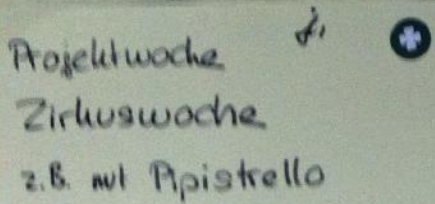 Projektwoche
Zirkuswoche
z.B. mit Pipistrello